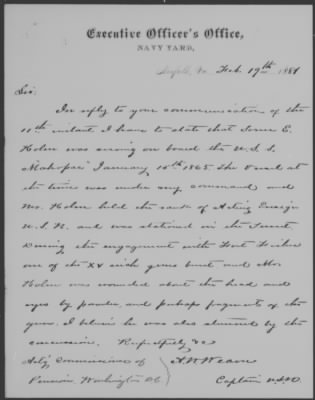 Executive Officer's Office,
NAVY YARD,
Norfolk, Va Feb 19th 1881
Sir:
In reply to your communication of the
11th instant I have to state that E.
was serving on board the U.S.S.
"Mahopac" January 15th 1865. The vessel at
the time was under my command and
Mr. held the rank of Acting Ensign
U.S.N. and was stationed in the Turret
During the engagement with Fort Fisher
one of the XV inch guns burst and Mr
was wounded about the head and
eyes by powder, and perhaps fragments of the
gun. I believe he was also stunned by the
concussion. Respectfully &c
Actg Commissioner of A.W. Weaver
Pensions, Washington DC Captain U.S.N.